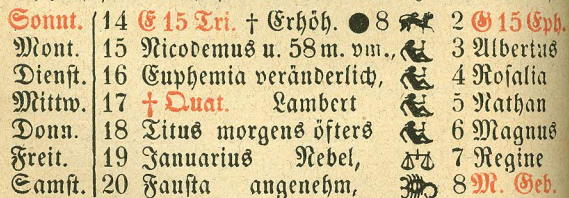 Sonnt. 14 E 15 Tri. † Erhöh. ● 8 2 G 15 Eph.
Mont. 15 Nicodemus u. 58 m. vm., 3 Albertus
Dienst. 16 Euphemia veränderlich, 4 Rosalia
Mittw. 17 † Quat. Lambert 5 Nathan
Donn. 18 Titus morgens öfters 6 Magnus
Freit. 19 Januarius Nebel, 7 Regine
Samst. 20 Fausta angenehm, 8 M. Geb.